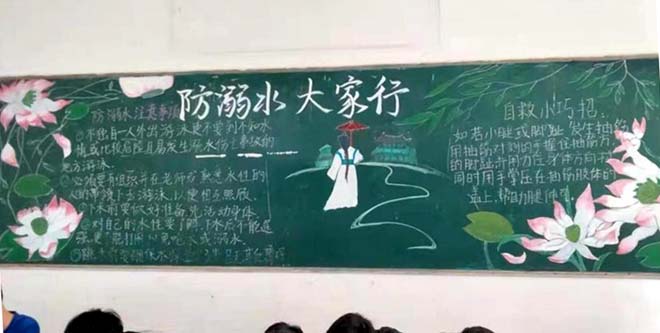 防溺水 大家行
防溺水 注意事项
①不独自一人外出游泳,更不要到不知水
情或比较危险且易发生溺水伤亡事故的
地方游泳.
②必须要有组织并在老师或熟悉水性的
人的带领下去游泳.以便相互照顾.
下水前要做好准备,先活动身体.
对自己的水性要了解,下水后不能逞
能
以免呛水或溺水.
自救小巧招:
如若小腿或脚趾发生抽筋
用抽筋对侧的手握住抽筋
的脚趾并用力往
同时用手掌压在抽筋肢体的
盖上,帮助腿伸直